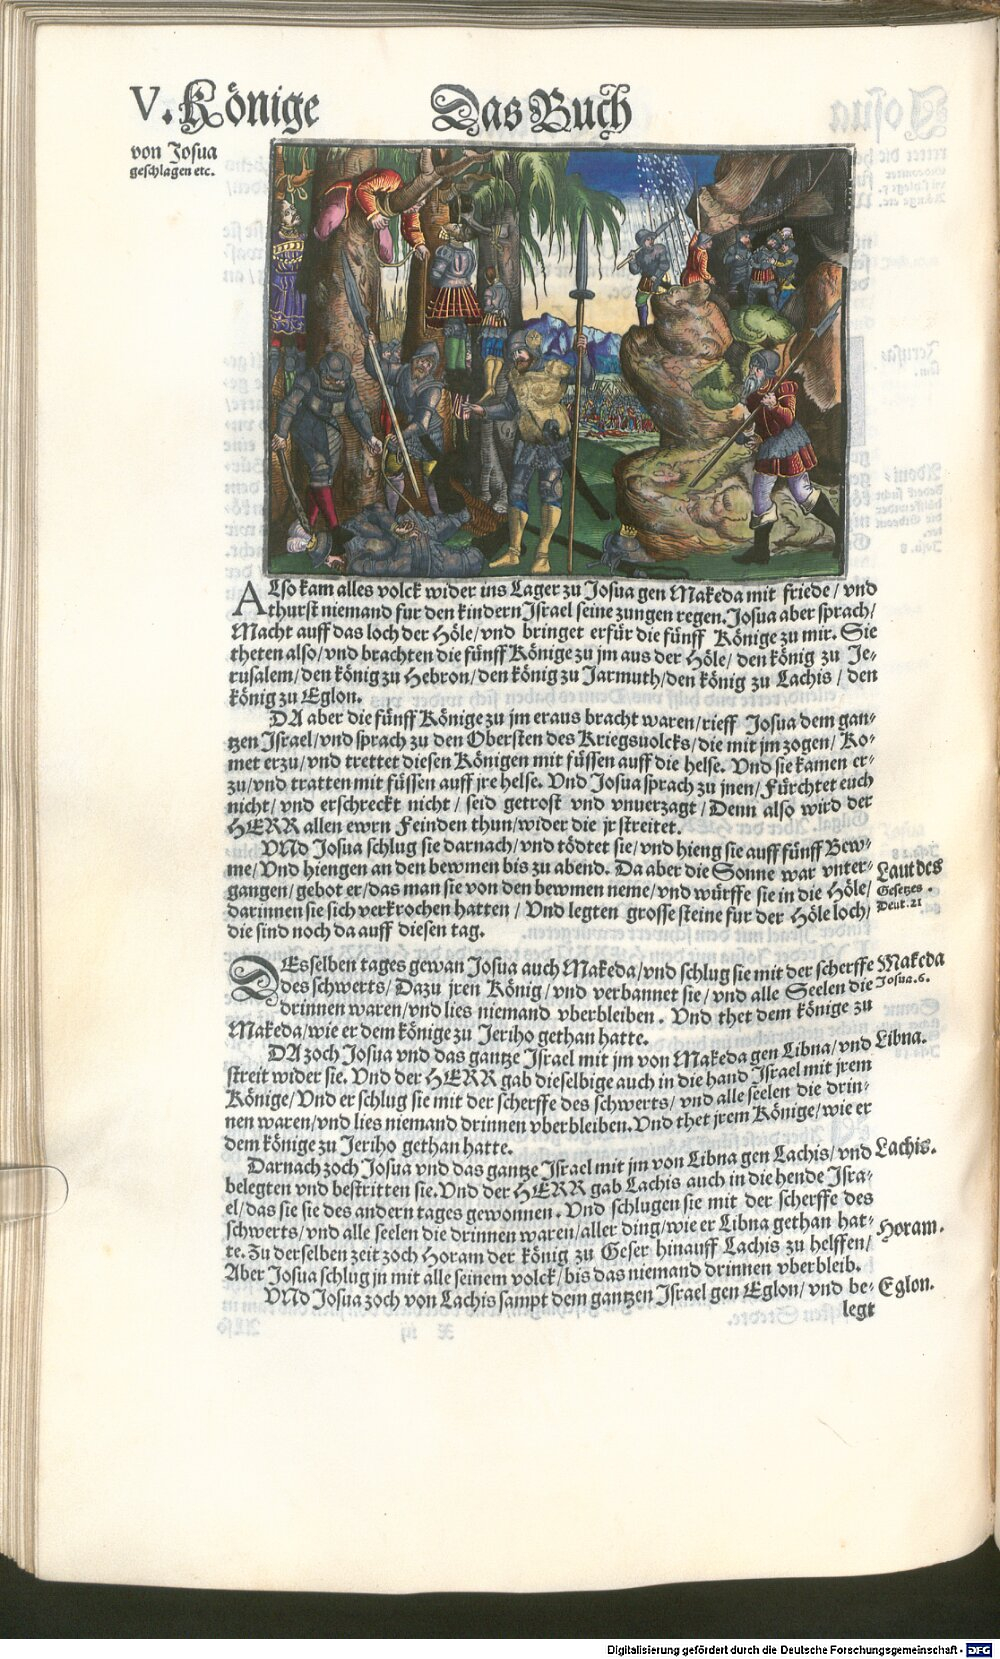 V. Könige
Das Buch
von Josua
geschlagen etc.
ALso kam alles volck wider ins Lager zu Josua gen Makeda mit friede/ vnd
thurst niemand fur den kindern Israel seine zungen regen. Josua aber sprach/
Macht auff das loch der Höle/ vnd bringet erfür die fünff Könige zu mir. Sie
theten also/ vnd brachten die fünff Könige zu jm aus der Höle/ den könig zu Je-
rusalem/ den könig zu Hebron/ den könig zu Jarmuth/ den könig zu Lachis/ den
könig zu Eglon.
DA aber die fünff Könige zu jm eraus bracht waren/ rieff Josua dem gan-
tzen Israel/ vnd sprach zu den Obersten des Kriegsuolcks/ die mit jm zogen/ Ko-
met erzu/ vnd trettet diesen Königen mit füssen auff die helse. Vnd sie kamen er-
zu/ vnd tratten mit füssen auff jre helse. Vnd Josua sprach zu jnen/ Fürchtet euch
nicht/ vnd erschreckt nicht/ seid getrost vnd vnuerzagt/ Denn also wird der
HERR allen ewrn Feinden thun/ wider die jr streitet.
VNd Josua schlug sie darnach/ vnd tödtet sie/ vnd hieng sie auff fünff Bew-
me/ Vnd hiengen an den bewmen bis zu abend. Da aber die Sonne war vnter-
gangen/ gebot er/ das man sie von den bewmen neme/ vnd würffe sie in die Höle/
darinnen sie sich verkrochen hatten/ Vnd legten grosse steine fur der Höle loch/
die sind noch da auff diesen tag.
Laut des
Gesetzes.
Deut. 21
DEsselben tages gewan Josua auch Makeda/ vnd schlug sie mit der scherffe
des schwerts/ Dazu jren König/ vnd verbannet sie/ vnd alle Seelen die
drinnen waren/ vnd lies niemand vberbleiben. Vnd thet dem könige zu
Makeda/ wie er dem könige zu Jeriho gethan hatte.
Makeda
Josua. 6.
DA zoch Josua vnd das gantze Israel mit jm von Makeda gen Libna/ vnd
streit wider sie. Vnd der HERR gab dieselbige auch in die hand Israel mit jrem
Könige/ Vnd er schlug sie mit der scherffe des schwerts/ vnd alle seelen die drin-
nen waren/ vnd lies niemand drinnen vberbleiben. Vnd thet jrem Könige/ wie er
dem könige zu Jeriho gethan hatte.
Libna.
Darnach zoch Josua vnd das gantze Israel mit jm von Libna gen Lachis/ vnd
belegten vnd bestritten sie. Vnd der HERR gab Lachis auch in die hende Isra-
el/ das sie sie des andern tages gewonnen. Vnd schlugen sie mit der scherffe des
schwerts/ vnd alle seelen die drinnen waren/ aller ding/ wie er Libna gethan hat-
te. Zu derselben zeit zoch Horam der könig zu Geser hinauff Lachis zu helffen/
Aber Josua schlug jn mit alle seinem volck/ bis das niemand drinnen vberbleib.
Lachis.
Horam.
VNd Josua zoch von Lachis sampt dem gantzen Israel gen Eglon/ vnd be-
legt
Eglon.
Digitalisierung gefördert durch die Deutsche Forschungsgemeinschaft - DFG